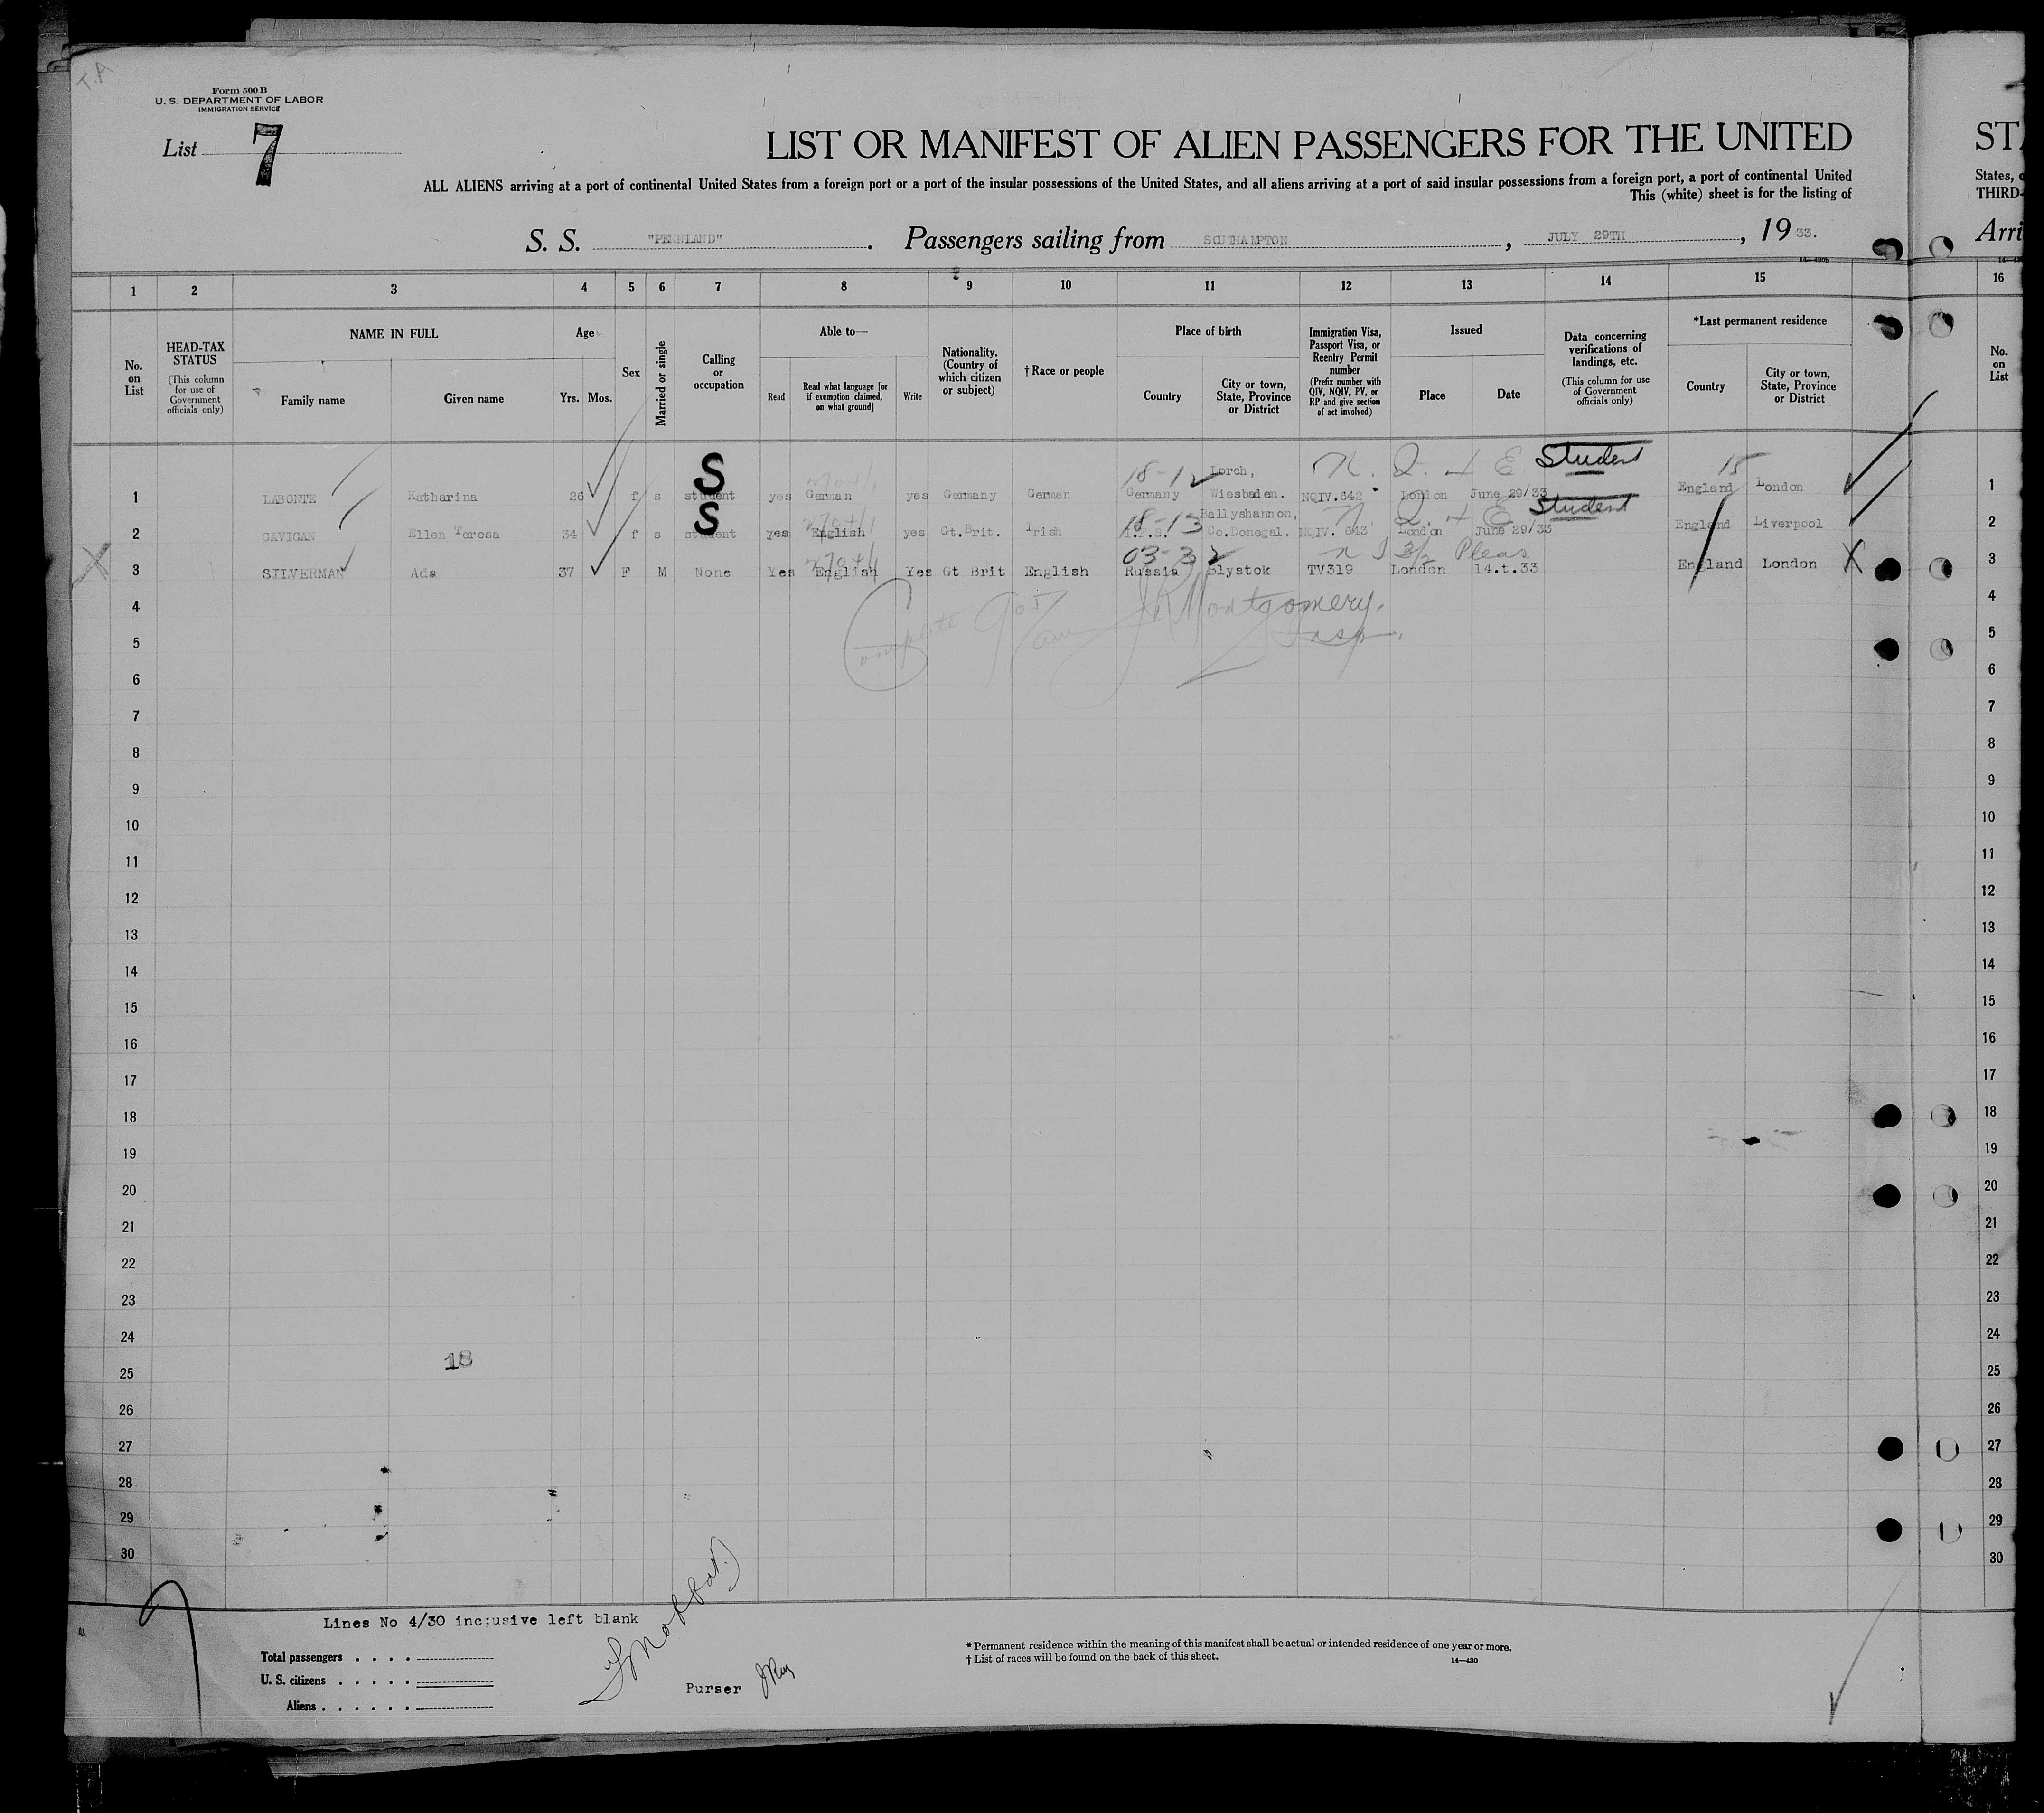 T.A
Form 500 B
U. S. DEPARTMENT OF LABOR
IMMIGRATION SERVICE
List 7
LIST OR MANIFEST OF ALIEN PASSENGERS FOR THE UNITED
ST
ALL ALIENS arriving at a port of continental United States from a foreign port or a port of the insular possessions of the United States, and all aliens arriving at a port of said insular possessions from a foreign port, a port of continental United
States,
This (white) sheet is for the listing of
THIRD-
S. S. "PENNLAND". Passengers sailing from SOUTHAMPTON, JULY 29TH, 1933.
Arri
1 2 3 4 5 6 7 8 9 10 11 12 13 14 15 16
No. on List
HEAD-TAX STATUS (This column for use of Government officials only)
NAME IN FULL
Family name
Given name
Age
Yrs. Mos.
Sex
Married or single
Calling or occupation
Able to—
Read
Read what language [or if exemption claimed, on what ground]
Write
Nationality. (Country of which citizen or subject)
†Race or people
Place of birth
Country
City or town, State, Province or District
Immigration Visa, Passport Visa, or Reentry Permit number (Prefix number with QIV, NQIV, PV, or RP and give section of act involved)
Issued
Place
Date
Data concerning verifications of landings, etc. (This column for use of Government officials only)
*Last permanent residence
Country
City or town, State, Province or District
No. on List
S 18-12 Lorch, N. Q. 4 E Student 15
1 LABONTE Katharina 26 f s student yes German yes Germany German Germany Wiesbaden. NQIV.642 London June 29/33 England London 1
S 18-13 Ballyshannon, N. Q. 4 E Student
2 GAVIGAN Ellen Teresa 34 f s student yes English yes Gt.Brit. Irish I.F.S. Co.Donegal. NQIV. 643 London June 29/33 England Liverpool 2
03-32 3/2 Pleas
X 3 SILVERMAN Ada 37 F M None Yes English Yes Gt Brit English Russia Blystok TV319 London 14.t.33 England London X 3
4 4
Complete JR Montgomery.
5 Insp. 5
6 6
7 7
8 8
9 9
10 10
11 11
12 12
13 13
14 14
15 15
16 16
17 17
18 18
19 19
20 20
21 21
22 22
23 23
24 24
18
25 25
26 26
27 27
28 28
29 29
30 30
Lines No 4/30 inc:usive left blank
Total passengers
U. S. citizens
Aliens
Purser
* Permanent residence within the meaning of this manifest shall be actual or intended residence of one year or more.
† List of races will be found on the back of this sheet.
14—430